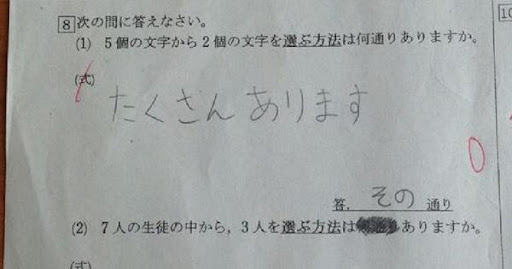 8 次の問に答えなさい。
(1) 5個の文字から2個の文字を選ぶ方法は何通りありますか。
(式)
たくさんあります
0
答. その 通り
(2) 7人の生徒の中から,3人を選ぶ方法はありますか。
(式)
10